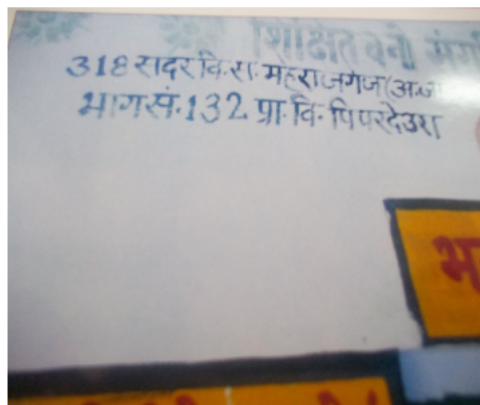 शिक्षित बनो
318 सदर वि. स. महराजगंज (अ.जा
भाग सं. 132 प्रा. वि. पिपरदेउरा